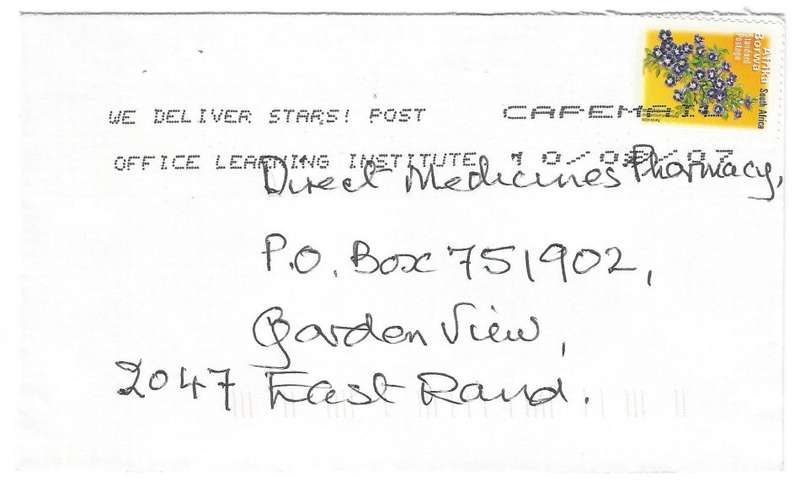 Afrika Borwa
South Africa
Standard Postage
WE DELIVER STARS! POST
CAPEMA
OFFICE LEARNING INSTITUTE
Direct Medicines Pharmacy,
P.O. Box 751902,
Garden View,
2047 East Rand.